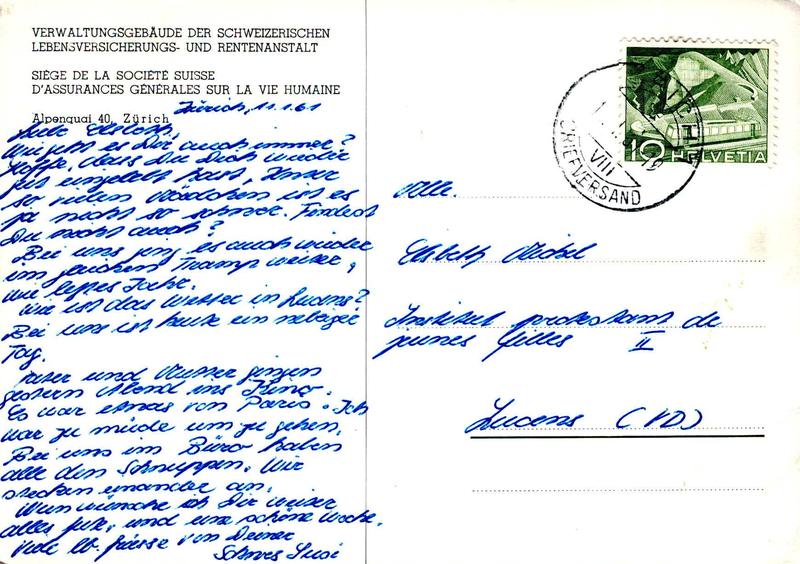 VERWALTUNGSGEBÄUDE DER SCHWEIZERISCHEN
LEBENSVERSICHERUNGS- UND RENTENANSTALT
SIÈGE DE LA SOCIÉTÉ SUISSE
D'ASSURANCES GÉNÉRALES SUR LA VIE HUMAINE
Alpenquai 40, Zürich
Zürich, 11.1.61
Liebe Elsbeth,
Wie geht es Dir auch immer?
Hoffe, dass Du Dich wieder
gut eingelebt hast. Unter
so vielen Mädchen ist es
ja nicht so schwer. Findest
Du nicht auch?
Bei uns ging es auch wieder
im gleichen Tramp weiter,
wie letztes Jahr.
Wie ist das Wetter in Lucens?
Bei uns ist heute ein nebliger
Tag.
Vater und Mutter gingen
gestern Abend ins Kino.
Es war etwas von Paris. Ich
war zu müde um zu gehen.
Bei uns im Büro haben
alle den Schnuppen. Wir
stecken einander an.
Nun wünsche ich Dir weiter
alles gute, und eine schöne Woche.
Viele lb. Grüsse von Deiner
Schwes Susi
BRIEFVERSAND
VIII
10 HELVETIA
Mlle.
Elsbeth
Institut protestant de
jeunes filles II
Lucens (VD)